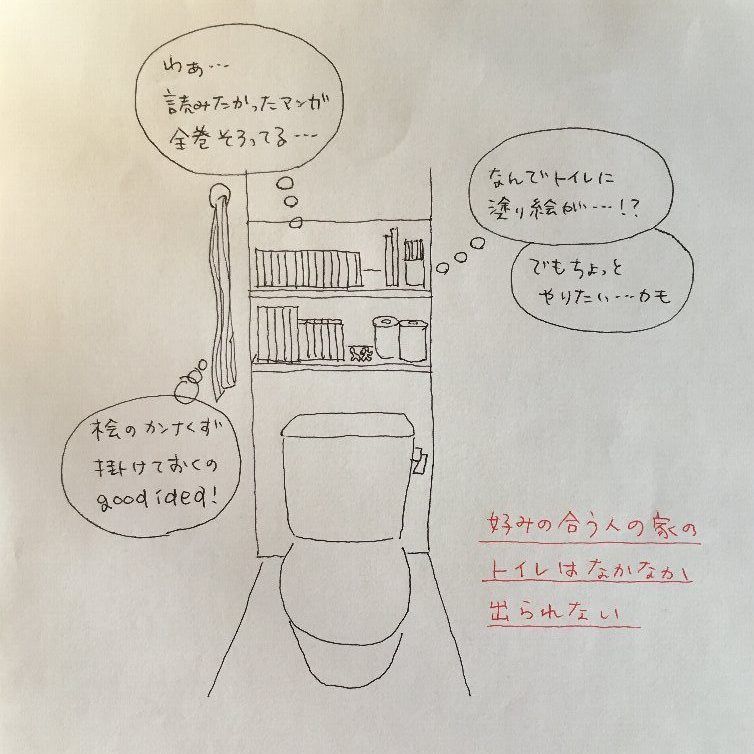 わぁ…
読みたかったマンガ
全巻そろってる…
なんでトイレに
塗り絵が…!?
でもちょっと
やりたい…かも
桧のカンナくず
掛けておくの
good idea!
好みの合う人の家の
トイレはなかなか
出られない